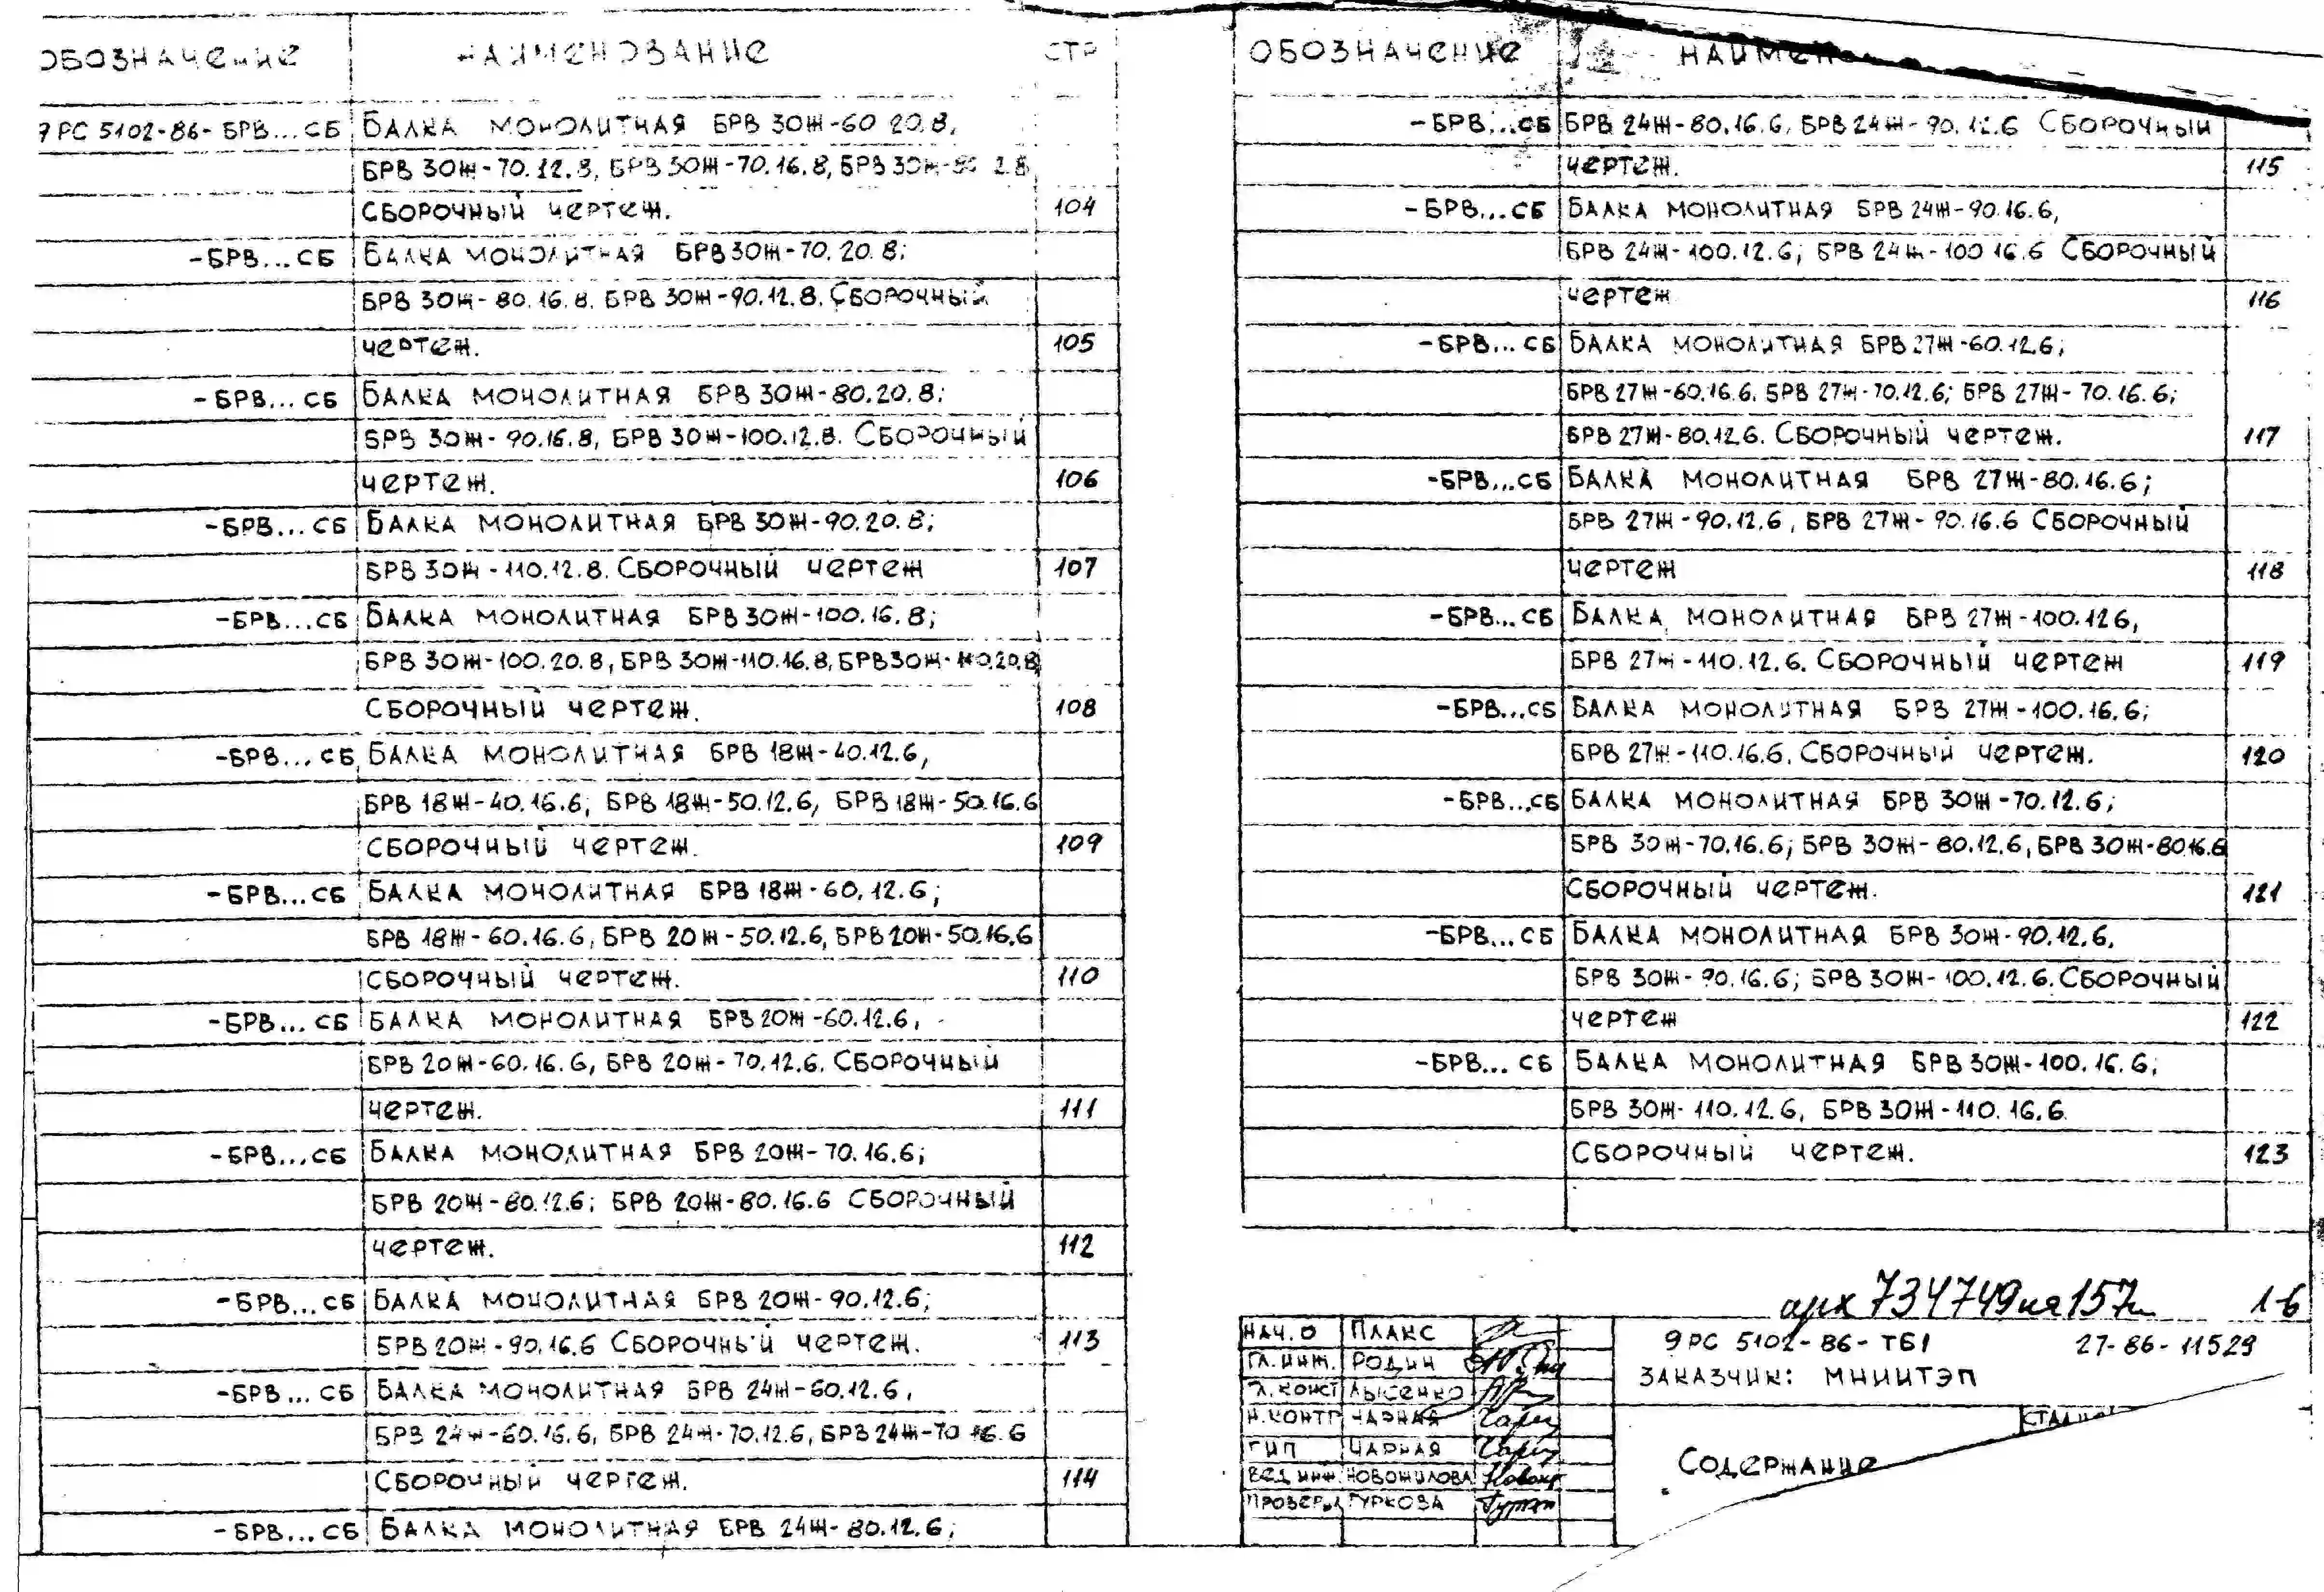 ОБОЗНАЧЕНИЕ НАИМЕНОВАНИЕ СТР
9 РС 5102-86- БРВ...СБ БАЛКА МОНОЛИТНАЯ БРВ 30Ж-60 20.8,
БРВ 30Ж-70.12.8, БРВ 30Ж-70.16.8, БРВ 30Ж-80 2.8,
СБОРОЧНЫЙ ЧЕРТЕЖ. 104
-БРВ...СБ БАЛКА МОНОЛИТНАЯ БРВ 30Ж-70.20.8;
БРВ 30Ж-80.16.8. БРВ 30Ж-90.12.8. СБОРОЧНЫЙ
ЧЕРТЕЖ. 105
-БРВ...СБ БАЛКА МОНОЛИТНАЯ БРВ 30Ж-80.20.8;
БРВ 30Ж-90.16.8, БРВ 30Ж-100.12.8. СБОРОЧНЫЙ
ЧЕРТЕЖ. 106
-БРВ...СБ БАЛКА МОНОЛИТНАЯ БРВ 30Ж-90.20.8;
БРВ 30Ж-110.12.8. СБОРОЧНЫЙ ЧЕРТЕЖ 107
-БРВ...СБ БАЛКА МОНОЛИТНАЯ БРВ 30Ж-100.16.8;
БРВ 30Ж-100.20.8, БРВ 30Ж-110.16.8, БРВ 30Ж-110.20.8,
СБОРОЧНЫЙ ЧЕРТЕЖ. 108
-БРВ...СБ БАЛКА МОНОЛИТНАЯ БРВ 18Ж-40.12.6,
БРВ 18Ж-40.16.6; БРВ 18Ж-50.12.6, БРВ 18Ж-50.16.6
СБОРОЧНЫЙ ЧЕРТЕЖ. 109
-БРВ...СБ БАЛКА МОНОЛИТНАЯ БРВ 18Ж-60.12.6;
БРВ 18Ж-60.16.6, БРВ 20Ж-50.12.6, БРВ 20Ж-50.16.6
СБОРОЧНЫЙ ЧЕРТЕЖ. 110
-БРВ...СБ БАЛКА МОНОЛИТНАЯ БРВ 20Ж-60.12.6,
БРВ 20Ж-60.16.6, БРВ 20Ж-70.12.6. СБОРОЧНЫЙ
ЧЕРТЕЖ. 111
-БРВ...СБ БАЛКА МОНОЛИТНАЯ БРВ 20Ж-70.16.6;
БРВ 20Ж-80.12.6; БРВ 20Ж-80.16.6 СБОРОЧНЫЙ
ЧЕРТЕЖ. 112
-БРВ...СБ БАЛКА МОНОЛИТНАЯ БРВ 20Ж-90.12.6;
БРВ 20Ж-90.16.6 СБОРОЧНЫЙ ЧЕРТЕЖ. 113
-БРВ...СБ БАЛКА МОНОЛИТНАЯ БРВ 24Ж-60.12.6,
БРВ 24Ж-60.16.6, БРВ 24Ж-70.12.6, БРВ 24Ж-70 16.6
СБОРОЧНЫЙ ЧЕРТЕЖ. 114
-БРВ...СБ БАЛКА МОНОЛИТНАЯ БРВ 24Ж-80.12.6;
ОБОЗНАЧЕНИЕ НАИМЕНО
-БРВ...СБ БРВ 24Ж-80.16.6, БРВ 24Ж-90.12.6 СБОРОЧНЫЙ
ЧЕРТЕЖ. 115
-БРВ...СБ БАЛКА МОНОЛИТНАЯ БРВ 24Ж-90.16.6,
БРВ 24Ж-100.12.6; БРВ 24Ж-100 16.6 СБОРОЧНЫЙ
ЧЕРТЕЖ 116
-БРВ...СБ БАЛКА МОНОЛИТНАЯ БРВ 27Ж-60.12.6;
БРВ 27Ж-60.16.6. БРВ 27Ж-70.12.6; БРВ 27Ж-70.16.6;
БРВ 27Ж-80.12.6. СБОРОЧНЫЙ ЧЕРТЕЖ. 117
-БРВ...СБ БАЛКА МОНОЛИТНАЯ БРВ 27Ж-80.16.6;
БРВ 27Ж-90.12.6, БРВ 27Ж-90.16.6 СБОРОЧНЫЙ
ЧЕРТЕЖ 118
-БРВ...СБ БАЛКА МОНОЛИТНАЯ БРВ 27Ж-100.12 6,
БРВ 27Ж-110.12.6. СБОРОЧНЫЙ ЧЕРТЕЖ 119
-БРВ...СБ БАЛКА МОНОЛИТНАЯ БРВ 27Ж-100.16.6;
БРВ 27Ж-110.16.6. СБОРОЧНЫЙ ЧЕРТЕЖ. 120
-БРВ...СБ БАЛКА МОНОЛИТНАЯ БРВ 30Ж-70.12.6;
БРВ 30Ж-70.16.6; БРВ 30Ж-80.12.6, БРВ 30Ж-80.16.6
СБОРОЧНЫЙ ЧЕРТЕЖ. 121
-БРВ...СБ БАЛКА МОНОЛИТНАЯ БРВ 30Ж-90.12.6,
БРВ 30Ж-90.16.6; БРВ 30Ж-100.12.6. СБОРОЧНЫЙ
ЧЕРТЕЖ 122
-БРВ...СБ БАЛКА МОНОЛИТНАЯ БРВ 30Ж-100.16.6;
БРВ 30Ж-110.12.6, БРВ 30Ж-110.16.6.
СБОРОЧНЫЙ ЧЕРТЕЖ. 123
арх 734749 на 157л 16
9 РС 5102-86-ТБ1 27-86-11529
ЗАКАЗЧИК: МНИИТЭП
НАЧ.О ПЛАКС
ГЛ.ИНЖ. РОДИН
ГЛ.КОНСТ ЛЫСЕНКО
Н.КОНТР ЧАРНАЯ
ГИП ЧАРНАЯ
ВЕД ИНЖ. НОВОЖИЛОВА
ПРОВЕРИЛ ГУРКОВА
СОДЕРЖАНИЕ